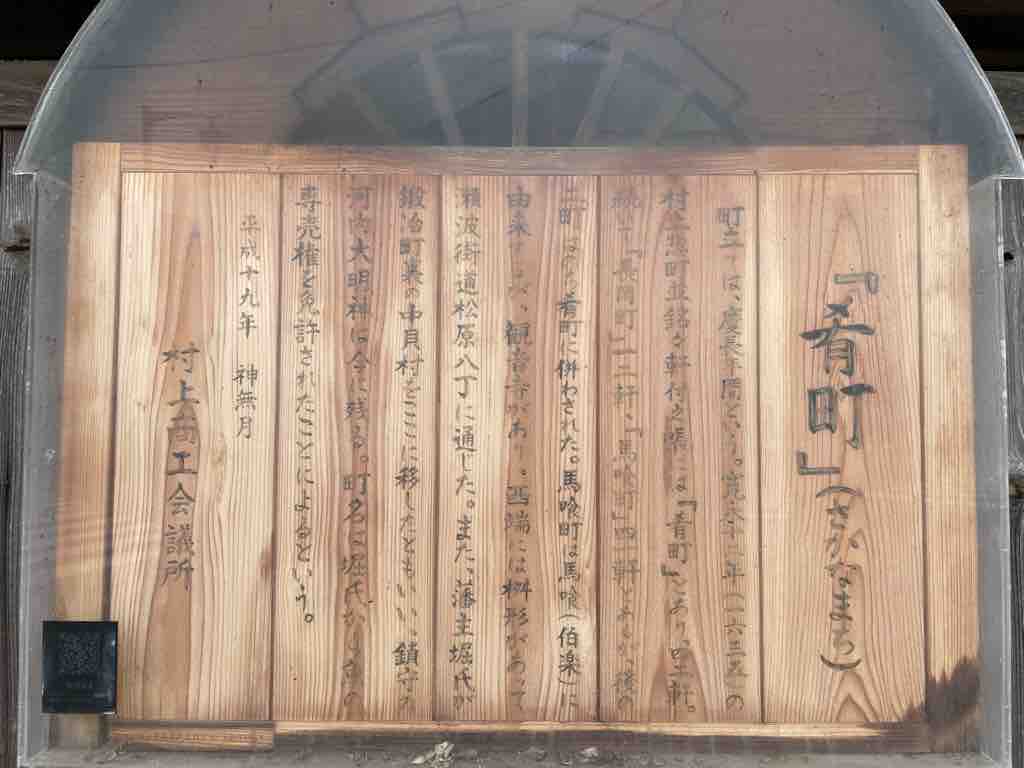 『肴町』(さかなまち)
町立ては、慶長年間という。寛永十二年(一六三五)の
村上惣町並銘々軒付之帳には『肴町』とあり、四二軒。
続いて『長岡町』一二軒、『馬喰町』四一軒とあるが、後の
二町はのち肴町に併わされた。馬喰町は馬喰(伯楽)に
由来すみ、観音寺があり、西端には桝形があって
瀬波街道松原八丁に通じた。また、藩主堀氏が
鍛治町裏の中貝村をここに移したともいい、鎮守の
河内大明神は今に残る。町名は堀氏から肴の
専売権を免許されたことによるという。
平成十九年 神無月
村上商工会議所